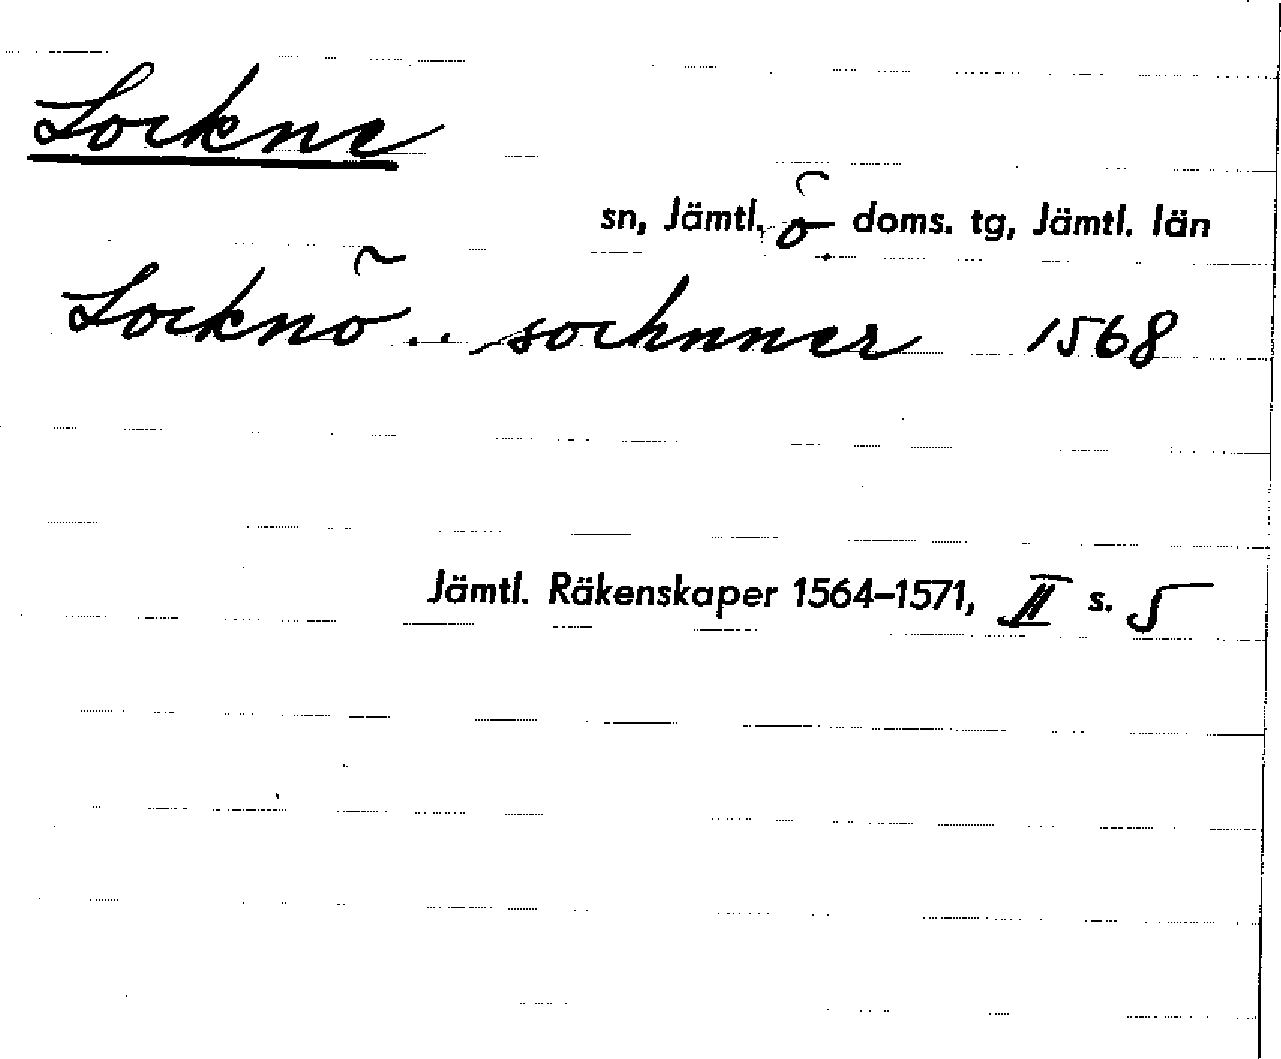 Lockne
sn, Jämtl. ö doms. tg, Jämtl. län
Locknö .. sochnner 1568
Jämtl. Räkenskaper 1564–1571, II s. 5